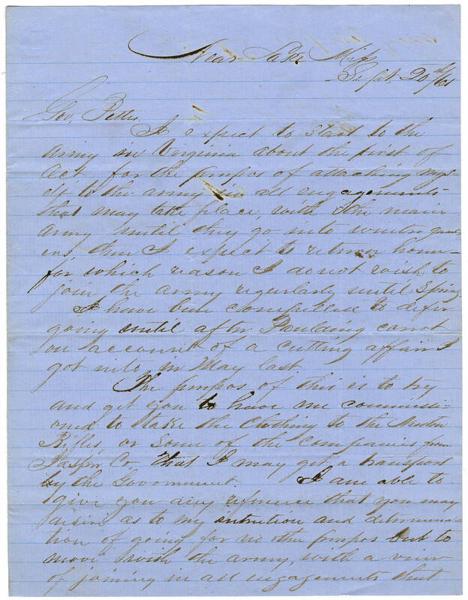 Near Lake Miss
Sept. 20th/61
Gov. Pettus,
I expect to start to the
army in Virginia about the first of
Oct for the purpos of attaching my
self to the army in all engagements
that may take place, with the main
army until they go into winter quar
ers, then I expect to return home
for which reason I do not wish to
join the army regularly until Spring
I have been compelled to defer
going until after Paulding court
on account of a cutting affair I
got into in May last.
The purpos of this is to try
and get you to have me commissi-
oned to take the clothing to the Newton
Rifles, or some of the companies from
Jasper, Co that I may get a transport
by the Government. I am able to
give you any refrence that you may
desire as to my intention and determina-
tion of going for no other purpos but to
move with the army, with a view
of joining in all engagements that